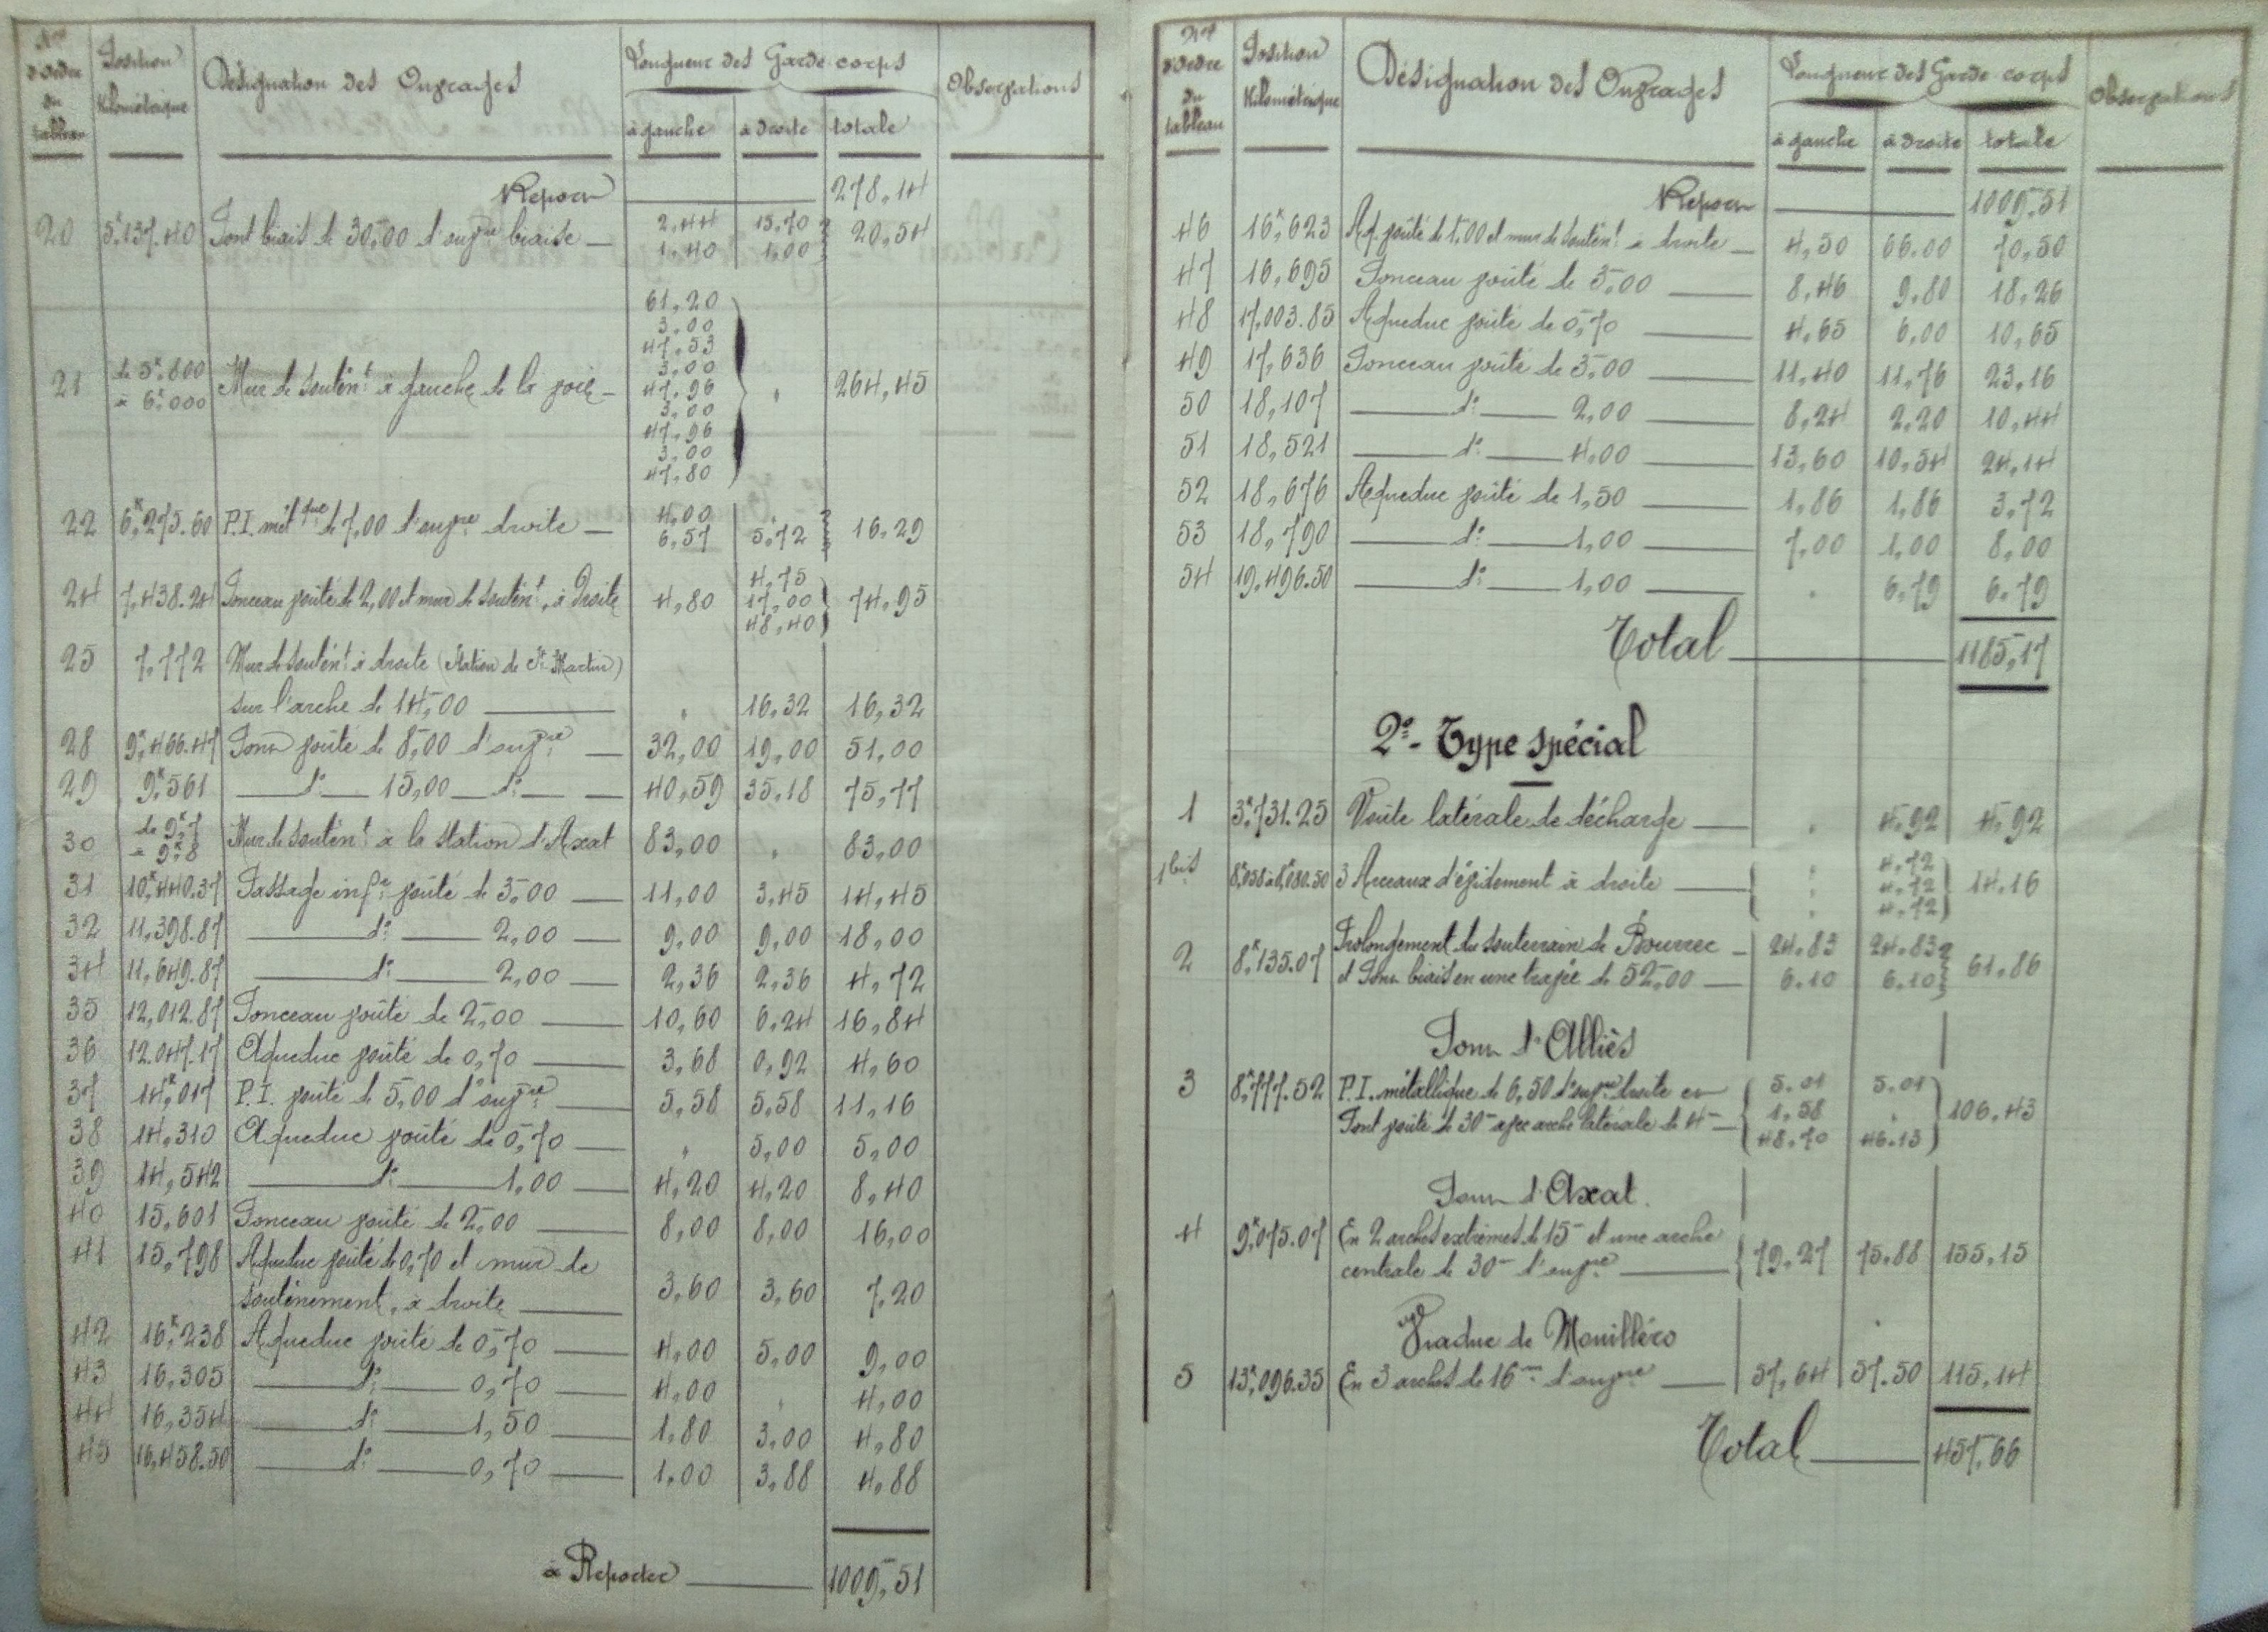 Nos d'ordre du tableau | Position Kilométrique | Désignation des Ouvrages | Longueur des Garde-corps | Observations
à gauche | à droite | totale
Report 278,14
20 | 5k137.40 | Pont biais de 30,00 d'ouvre biaise | 2,44 | 15,70 | 20,54
1,40 | 1,00
61,20
3,00
47,53
3,00
21 | de 5k,800 à 6k,000 | Mur de soutent à gauche de la voie | 47,96 | " | 264,45
3,00
47,96
3,00
47,80
22 | 6k275.60 | P.I. métque de 7,00 d'ouvre droite | 4,00 | " | 16,29
6,57 | 5,72
24 | 7,438.24 | Ponceau voûté de 2,00 et mur de soutent, à droite | 4,80 | 4,75 | 74,95
17,00
48,40
25 | 7,772 | Mur de soutent à droite (Station de St Martin)
sur l'arche de 14,00 | " | 16,32 | 16,32
28 | 9k,466.47 | Pont voûté de 8,00 d'ouvre | 32,00 | 19,00 | 51,00
29 | 9k561 | do 15,00 do | 40,59 | 35,18 | 75,77
30 | de 9k,7 à 9k,8 | Mur de soutent à la station d'Axat | 83,00 | " | 83,00
31 | 10k440.37 | Passage infr voûté de 3,00 | 11,00 | 3,45 | 14,45
32 | 11,398.87 | do 2,00 | 9,00 | 9,00 | 18,00
34 | 11,649.87 | do 2,00 | 2,36 | 2,36 | 4,72
35 | 12,012.87 | Ponceau voûté de 2,00 | 10,60 | 6,24 | 16,84
36 | 12.047.17 | Aqueduc voûté de 0,70 | 3,68 | 0,92 | 4,60
37 | 14k,017 | P.I. voûté de 5,00 d'ouvre | 5,58 | 5,58 | 11,16
38 | 14,310 | Aqueduc voûté de 0,70 | " | 5,00 | 5,00
39 | 14,542 | do 1,00 | 4,20 | 4,20 | 8,40
40 | 15,601 | Ponceau voûté de 2,00 | 8,00 | 8,00 | 16,00
41 | 15,798 | Aqueduc voûté de 0,70 et mur de
soutènement, à droite | 3,60 | 3,60 | 7,20
42 | 16k238 | Aqueduc voûté de 0,70 | 4,00 | 5,00 | 9,00
43 | 16,305 | do 0,70 | 4,00 | " | 4,00
44 | 16,354 | do 1,50 | 1,80 | 3,00 | 4,80
45 | 16,458.50 | do 0,70 | 1,00 | 3,88 | 4,88
à Reporter 1009,51
Nos d'ordre du tableau | Position Kilométrique | Désignation des Ouvrages | Longueur des Garde-corps | Observations
à gauche | à droite | totale
Report 1009,51
46 | 16k,623 | Aq. voûté de 1,00 et mur de soutent à droite | 4,50 | 66.00 | 70,50
47 | 16,695 | Ponceau voûté de 3,00 | 8,46 | 9,80 | 18,26
48 | 17,003.85 | Aqueduc voûté de 0,70 | 4,65 | 6,00 | 10,65
49 | 17,636 | Ponceau voûté de 3,00 | 11,40 | 11,76 | 23,16
50 | 18,107 | do 2,00 | 8,24 | 2,20 | 10,44
51 | 18,521 | do 4,00 | 13,60 | 10,54 | 24,14
52 | 18,676 | Aqueduc voûté de 1,50 | 1,86 | 1,86 | 3,72
53 | 18,790 | do 1,00 | 7,00 | 1,00 | 8,00
54 | 19,496.50 | do 1,00 | " | 6,79 | 6,79
Total 1185,17
2o - Type spécial
1 | 3k,731.25 | Voûte latérale de décharge | " | 4,92 | 4,92
1bis | 8k,058 à 8k,080.50 | 3 Arceaux d'évidement à droite | " | 4,72 | 14.16
" | 4,72
" | 4,72
2 | 8k,135.07 | Prolongement du souterrain de Bourrec | 24.83 | 24.83 | 61,86
et Pont biais en une travée de 52,00 | 6.10 | 6.10
Pont d'Alliès
3 | 8k,777.52 | P.I. métallique de 6,50 d'ouvre droite et | 5.01 | 5.01
Pont voûté de 30m avec arche latérale de 4m | 1,58 | " | 106,43
48.70 | 46.13
Pont d'Axat.
4 | 9k,075.07 | En 2 arches extrêmes de 15m et une arche
centrale de 30m d'ouvre | 79.27 | 75.88 | 155,15
Viaduc de Mouilléro
5 | 13k,096.35 | En 3 arches de 16m d'ouvre | 57,64 | 57.50 | 115,14
Total 457,66